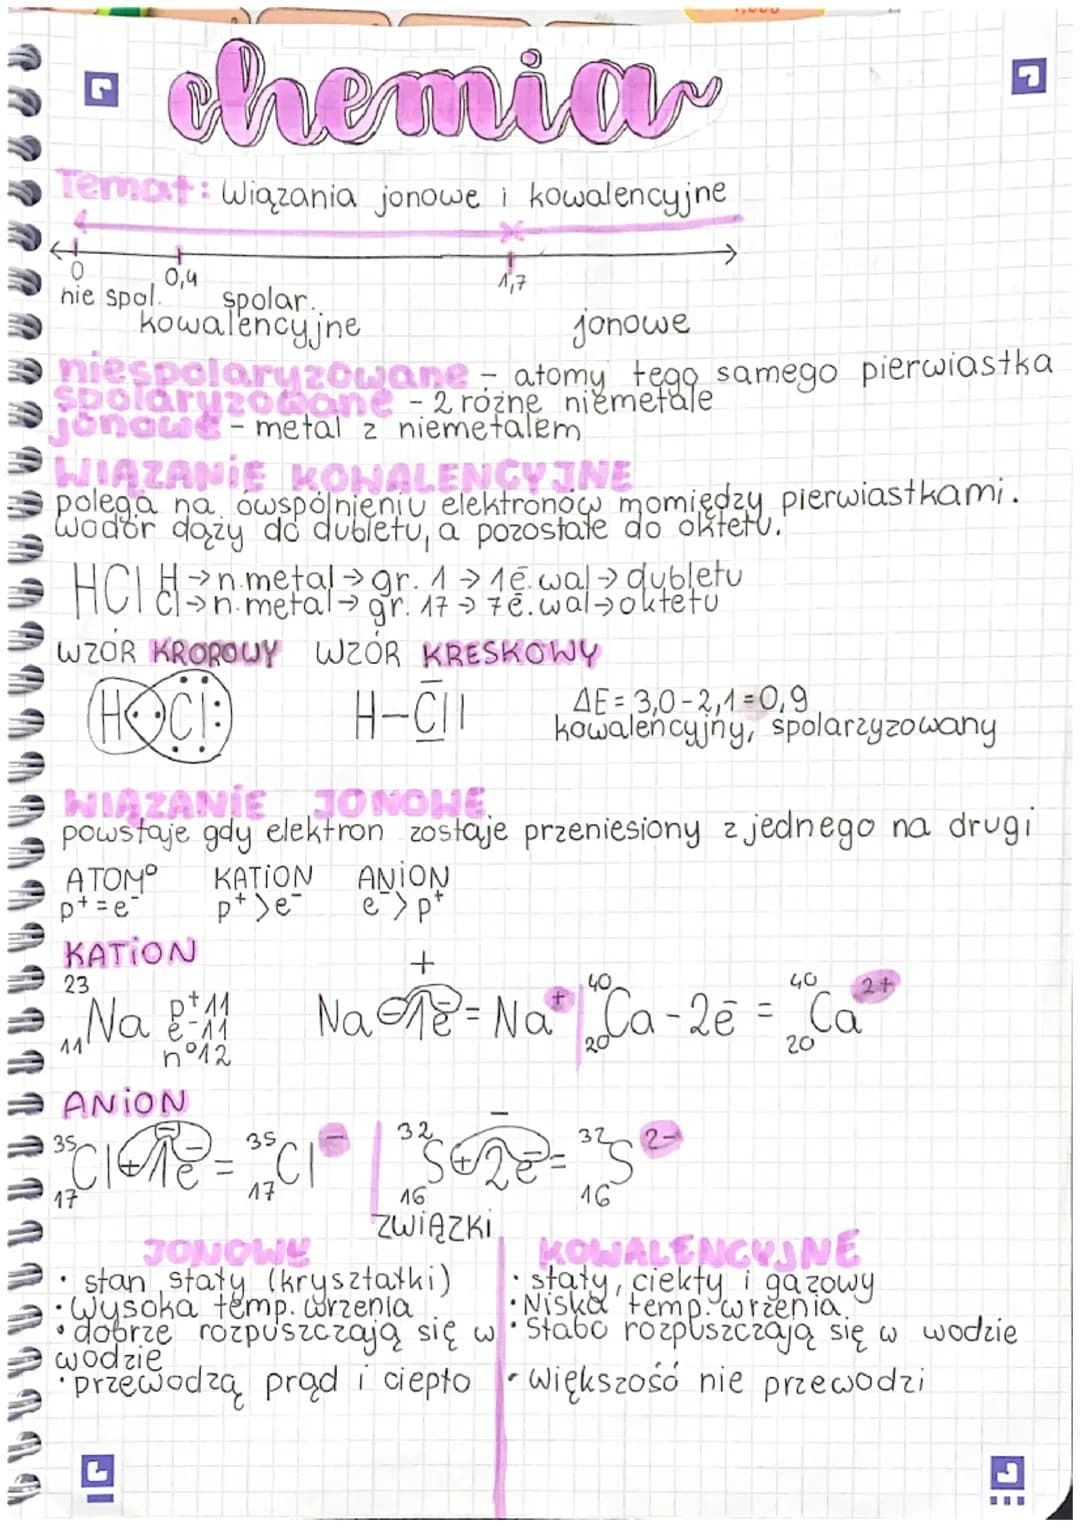 chemia
Temat: Wiązania jonowe i kowalencyjne
0 0,4 1,7
nie spol. spolar.
kowalencyjne jonowe
niespolaryzowane - atomy tego samego pierwiastka
spolaryzowane - 2 różne niemetale
jonowe - metal z niemetalem
WIĄZANIE KOWALENCYJNE
polega na ówspólnieniu elektronów momiędzy pierwiastkami.
wodór dąży do dubletu, a pozostałe do oktetu.
HCl H→n.metal→gr. 1→1ē.wal→dubletu
Cl→n.metal→gr. 17→7ē.wal→oktetu
WZÓR KROPOWY WZÓR KRESKOWY
H Cl H-Cl| ΔE = 3,0-2,1=0,9
kowalencyjny, spolarzyzowany
WIĄZANIE JONOWE
powstaje gdy elektron zostaje przeniesiony z jednego na drugi
ATOM⁰ KATION ANION
p⁺=e⁻ p⁺>e⁻ e⁻>p⁺
KATION
+
²³₁₁Na p⁺11 e⁻11 n⁰12 Na-1ē=Na⁺ | ⁴⁰₂₀Ca-2ē = ⁴⁰₂₀Ca²⁺
ANION
³⁵₁₇Cl+1ē=³⁵₁₇Cl⁻ | ³²₁₆S+2ē=³²₁₆S²⁻
ZWIĄZKI
JONOWE KOWALENCYJNE
• stan stały (kryształki) • stały, ciekły i gazowy
• Wysoka temp. wrzenia • Niska temp. wrzenia
• dobrze rozpuszczają się w • Słabo rozpuszczają się w wodzie
wodzie
• przewodzą prąd i ciepło • większość nie przewodzi